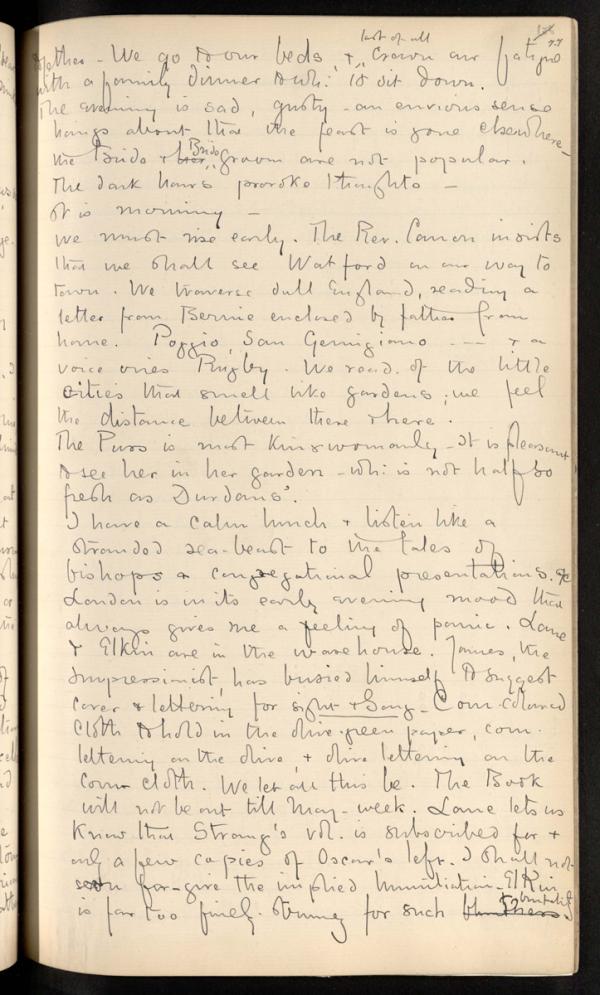 77
together - We go to our beds, & last of all crown our fatigue
with a family dinner to wh: 10 sit down.
The evening is sad, gusty - an envious sense
hangs about that the feast is gone elsewhere -
the Bride & her Bridegroom are not popular.
The dark hours provoke thoughts -
It is morning -
We must rise early. The Rev. Canon insists
that we shall see Watford on our way to
town. We traverse dull England, reading a
letter from Bernie enclosed by father from
home. Poggio, San Gemigiano --- & a
voice cries Rugby. We read of the little
cities that smell like gardens; we feel
the distance between there & here.
The Puss is most kinswomanly - It is pleasant
to see her in her garden - wh: is not half so
fresh as Durdans'.
I have a calm lunch & listen like a
stranded sea-beast to the tales of
bishops & congregational presentations. &c
London is in its early evening mood that
always gives me a feeling of panic. Lane
& Elkin are in the warehouse. James, the
Impressionist, has busied himself to suggest
cover & lettering for Sight & Song - Corn-coloured
cloth to hold in the olive-green paper, corn
lettering on the olive, & olive lettering on the
corn cloth. We let all this be. The Book
will not be out till May-week. Lane lets us
know that Strang's vol. is subscribed for &
only a few copies of Oscar's left. I shall not
soon for-give the implied humiliation - Elkin
is far too finely-strung for such brutality